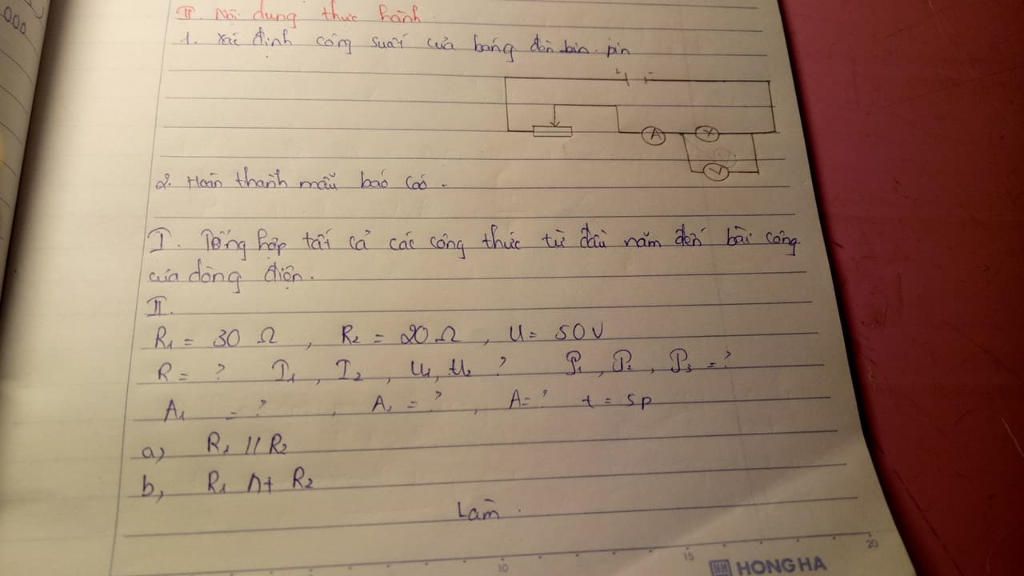 000
II. Nội dung thực hành
1. Xác định công suất của bóng đèn bin pin
A
V
2. Hoàn thành mẫu báo cáo.
I. Tổng hợp tất cả các công thức từ đầu năm đến bài công
của dòng điện.
II.
R₁ = 30 Ω , R₂ = 20 Ω , U = 50V
R = ? I₁ , I₂ , U₁, U₂ ? P₁ , P₂ , P₃ = ?
A₁ = ? , A₂ = ? , A = ? t = 5p
a) R₁ // R₂
b, R₁ nt R₂
Làm.
10 15 20
HH HONG HA